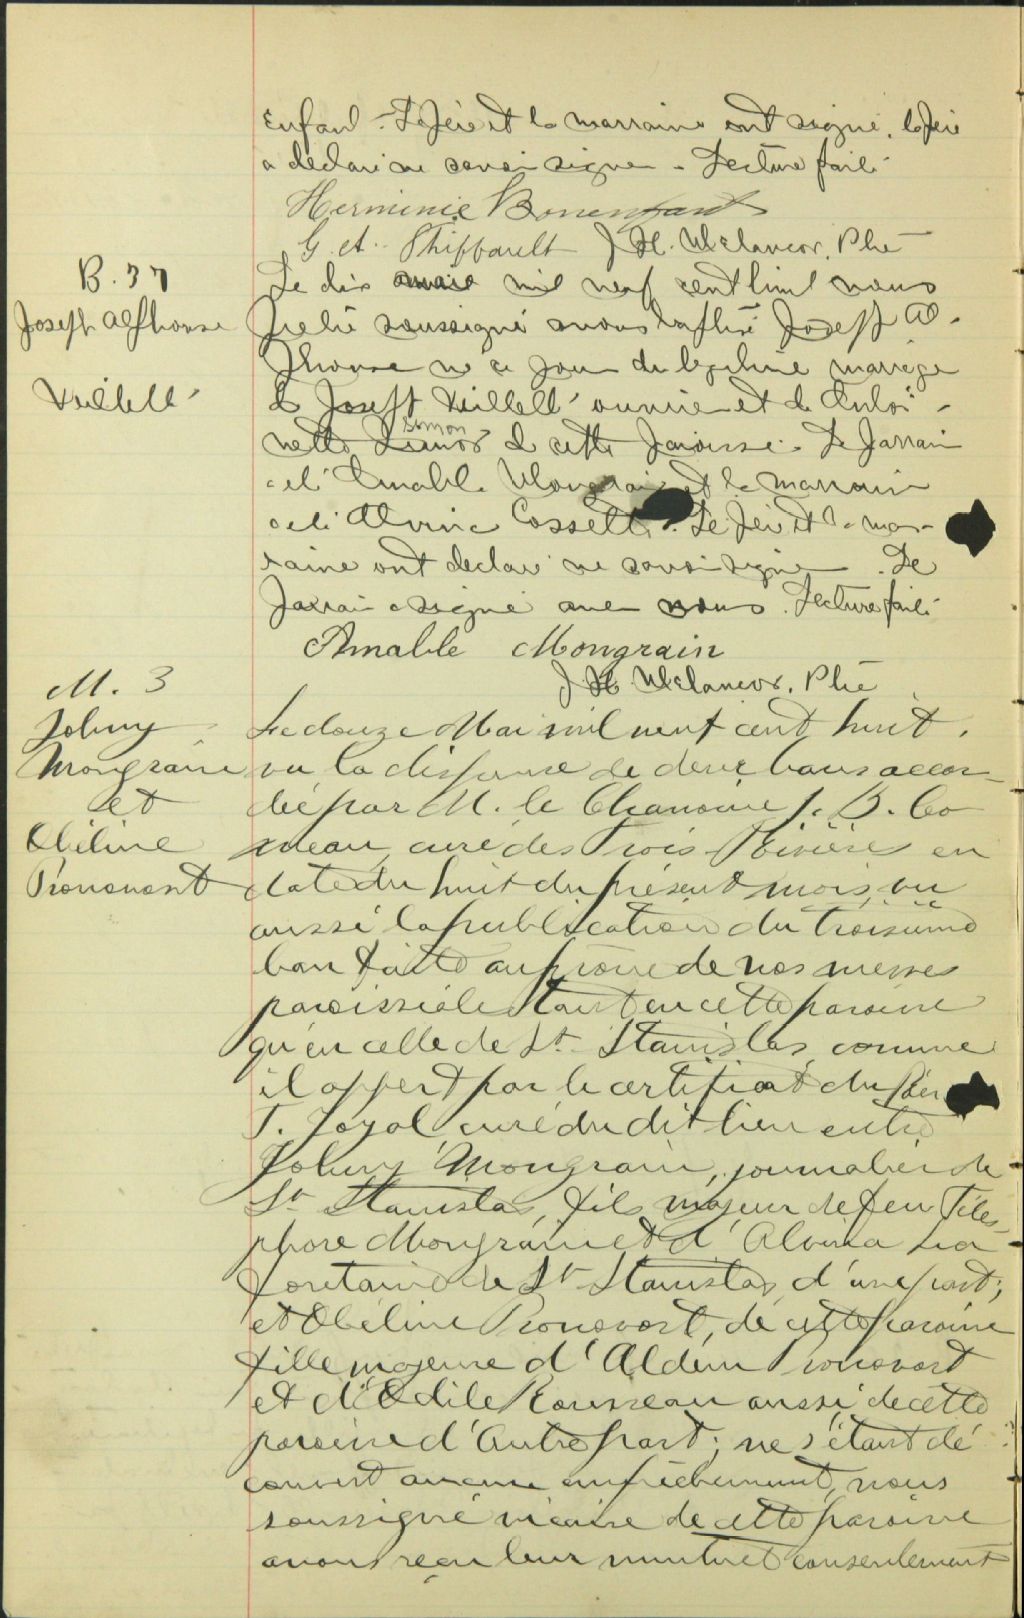 Enfant - Le père et la marraine ont signé, le père
a déclaré ne savoir signer - Lecture faite
Herminie Bonenfant
G. A. Thiffault J. H. Melancon, Ptre
B. 37
Joseph Alphonse
Veillette
Le dix mai mil neuf cent huit nous
Prêtre soussigné avons baptisé Joseph Al-
phonse né ce jour du légitime mariage
de Joseph Veillette ouvrier et de Antoi-
nette Simon de cette paroisse. Le parrain
a été Amable Mongrain et la marraine
a été Alvina Cossette. Le père et la mar-
raine ont déclaré ne savoir signer. Le
parrain a signé avec nous. Lecture faite
Amable Mongrain
J. H. Melancon, Ptre
M. 3
Johny
Mongrain
et
Obéline
Pronovost
Le douze Mai mil neuf cent huit,
vu la dispense de deux bans accor-
dée par M. le Chanoine J. B. Co
meau, curé des Trois-Rivières en
date du huit du présent mois, vu
aussi la publication du troisième
ban faite au prône de nos messes
paroissiales tant en cette paroisse
qu'en celle de St Stanislas, comme
il appert par le certificat du Rév
T. Joyal, curé du dit lieu entre
Johny Mongrain, journalier de
St Stanislas, fils majeur de feu Téles
phore Mongrain et d'Alvina La
fontaine de St Stanislas, d'une part;
et Obéline Pronovost, de cette paroisse
fille majeure d'Aldém Pronovost
et d'Odile Rousseau aussi de cette
paroisse d'autre part; ne s'étant dé
couvert aucun empêchement, nous
soussigné vicaire de cette paroisse
avons reçu leur mutuel consentement